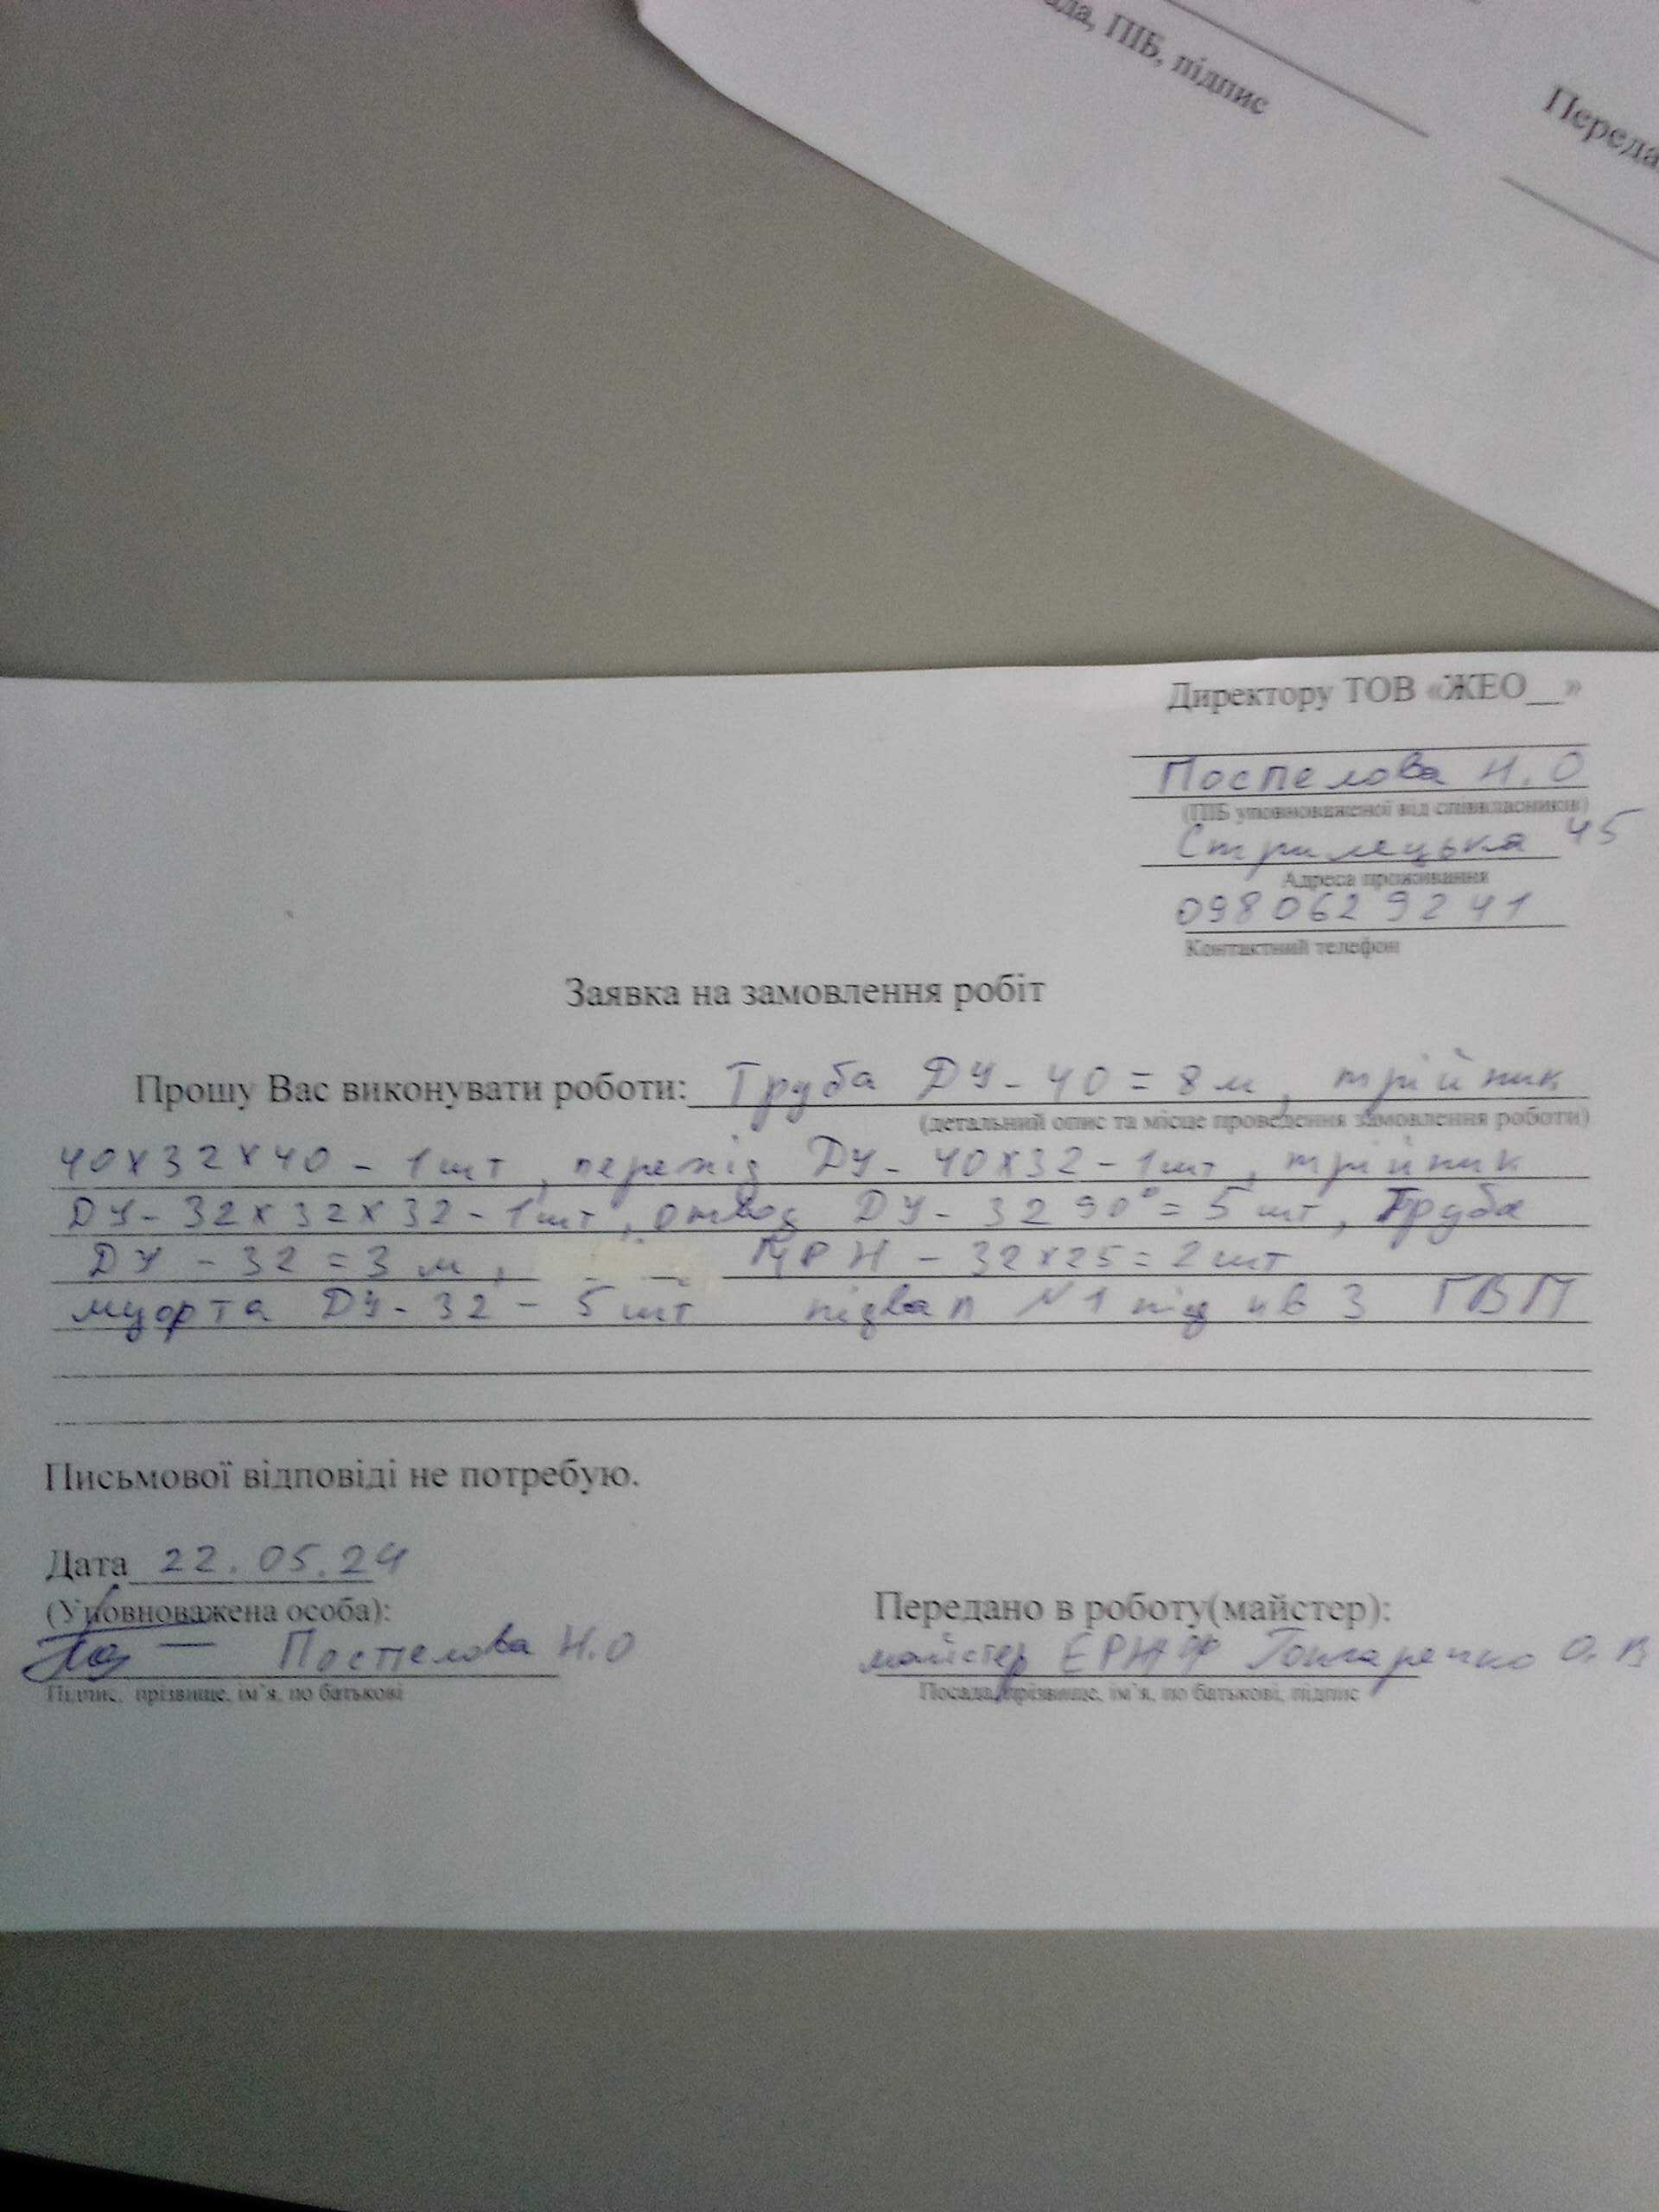 да, ПІБ, підпис
Переда
Директору ТОВ «ЖЕО__»
Поспелова Н.О
(ПІБ уповноваженої від співвласників)
Стрилецька 45
Адреса проживання
098 062 92 41
Контактний телефон
Заявка на замовлення робіт
Прошу Вас виконувати роботи: Труба ДУ - 40 = 8 м, трійник
(детальний опис та місце проведення замовлення роботи)
40х32х40 - 1 шт, перехід ДУ - 40х32 - 1 шт, трійник
ДУ - 32х32х32 - 1 шт, отвод ДУ - 32 90° = 5 шт, Труба
ДУ - 32 = 3 м, МРН - 32х25 = 2 шт
муфта ДУ - 32 - 5 шт підвал №1 під кв 3 ГВП
Письмової відповіді не потребую.
Дата 22.05.24
(Уповноважена особа):
Передано в роботу(майстер):
Поспелова Н.О
майстер Гончаренко О.В
Підпис, прізвище, ім'я, по батькові
Посада, прізвище, ім'я, по батькові, підпис